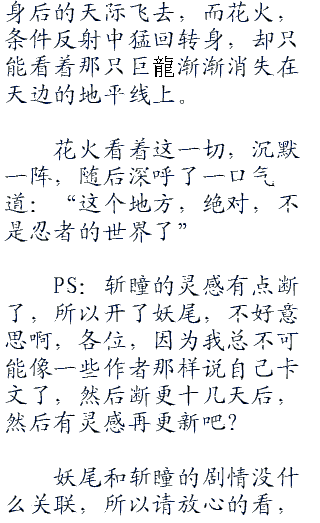 身后的天际飞去，而花火，
条件反射中猛回转身，却只
能看着那只巨龍渐渐消失在
天边的地平线上。
花火看着这一切，沉默
一阵，随后深呼了一口气
道：“这个地方，绝对，不
是忍者的世界了”
PS：斩瞳的灵感有点断
了，所以开了妖尾，不好意
思啊，各位，因为我总不可
能像一些作者那样说自己卡
文了，然后断更十几天后，
然后有灵感再更新吧？
妖尾和斩瞳的剧情没什
么关联，所以请放心的看，